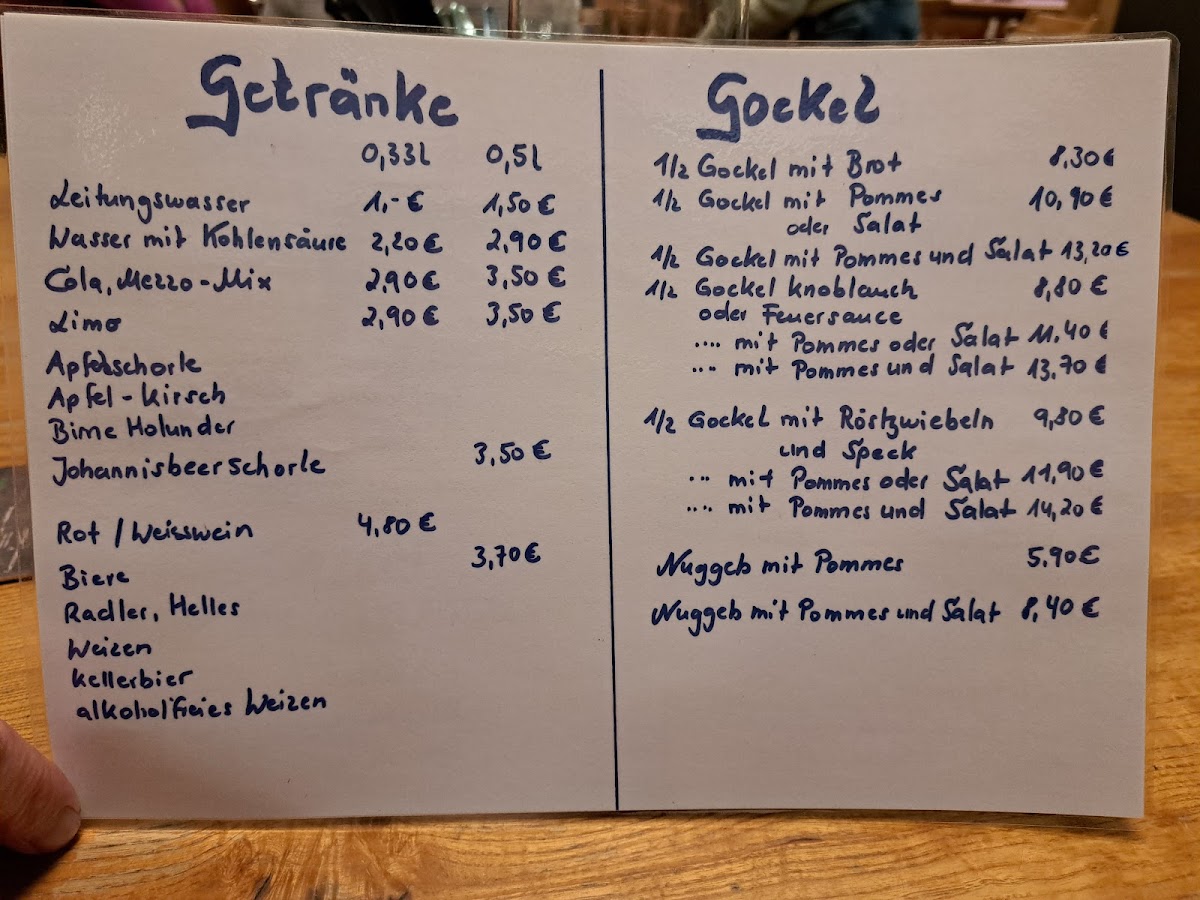 Getränke
0,33l 0,5l
Leitungswasser 1,-€ 1,50€
Wasser mit Kohlensäure 2,20€ 2,90€
Cola, Mezzo-Mix 2,90€ 3,50€
Limo 2,90€ 3,50€
Apfelschorle
Apfel-Kirsch
Birne Holunder
Johannisbeerschorle 3,50€
Rot/Weisswein 4,80€
3,70€
Biere
Radler, Helles
Weizen
Kellerbier
alkoholfreies Weizen
Gockel
1/2 Gockel mit Brot 8,30€
1/2 Gockel mit Pommes 10,90€
oder Salat
1/2 Gockel mit Pommes und Salat 13,20€
1/2 Gockel Knoblauch 8,80€
oder Feuersauce
.... mit Pommes oder Salat 11.40€
... mit Pommes und Salat 13.70€
1/2 Gockel mit Röstzwiebeln 9,80€
und Speck
... mit Pommes oder Salat 11,90€
.... mit Pommes und Salat 14,20€
Nuggets mit Pommes 5.90€
Nuggets mit Pommes und Salat 8,40€